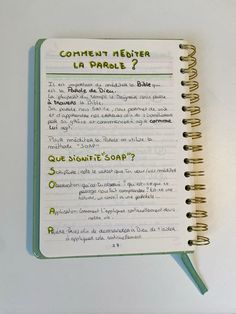 COMMENT MÉDITER
LA PAROLE ?
Il est important de méditer la Bible qui
est la Parole de Dieu.
La plupart du temps le Seigneur nous parle
à travers la Bible.
Sa parole nous guide, nous permet de voir
et d'apprendre nos erreurs afin de
par sa grâce et commencer agir comme
lui agit.
Pour méditer la Parole on utilise la
méthode "SOAP"
QUE SIGNIFIE "SOAP" ?
Scripture : note le verset que tu veux/vas méditer
Observation : qu'as-tu observé ? qu'est-ce que ce
passage nous fait comprendre ? Est-ce une
histoire, un conseil ou une parabole...
Application : Comment l'appliquer continuellement dans
notre vie.
Prière : Prends afin de demander à Dieu de t'aider
à appliquer cela continuellement